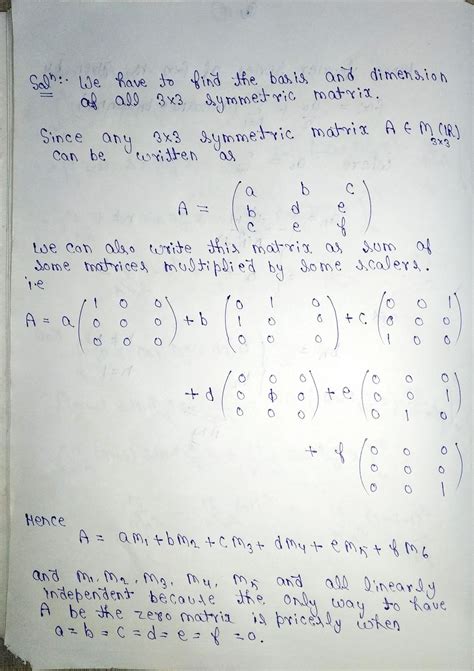 Solⁿ:- We have to find the basis and dimension
of all 3×3 symmetric matrix.
Since any 3×3 symmetric matrix A ∈ M (IR)
3×3
can be written as
A = ( a b c
b d e
c e f )
We can also write this matrix as sum of
some matrices multiplied by some scalers.
i.e
A = a ( 1 0 0 ) + b ( 0 1 0 ) + c ( 0 0 1 )
( 0 0 0 ) ( 1 0 0 ) ( 0 0 0 )
( 0 0 0 ) ( 0 0 0 ) ( 1 0 0 )
+ d ( 0 0 0 ) + e ( 0 0 0 )
( 0 1 0 ) ( 0 0 1 )
( 0 0 0 ) ( 0 1 0 )
+ f ( 0 0 0 )
( 0 0 0 )
( 0 0 1 )
Hence
A = am₁ + bm₂ + cm₃ + dm₄ + em₅ + fm₆
and m₁, m₂, m₃, m₄, m₅ and all linearly
independent because the only way to have
A be the zero matrix is pricesly when
a = b = c = d = e = f = 0.